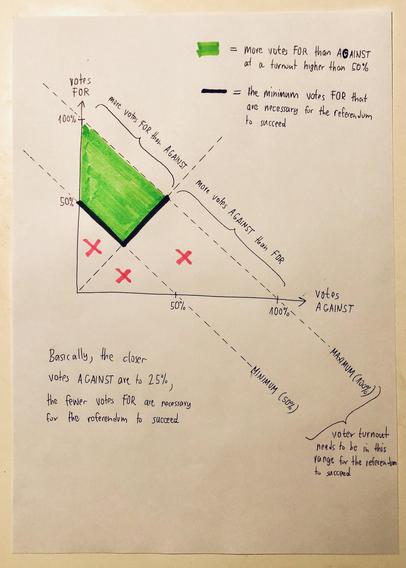 = more votes FOR than AGAINST
at a turnout higher than 50%
= the minimum votes FOR that
are necessary for the referendum
to succeed
votes
FOR
100%
more votes FOR than AGAINST
50%
more votes AGAINST than FOR
50%
100%
votes
AGAINST
MINIMUM (50%)
MAXIMUM (100%)
Basically, the closer
votes AGAINST are to 25%,
the fewer votes FOR are necessary
for the referendum to succeed
voter turnout
needs to be in this
range for the referendum
to succeed